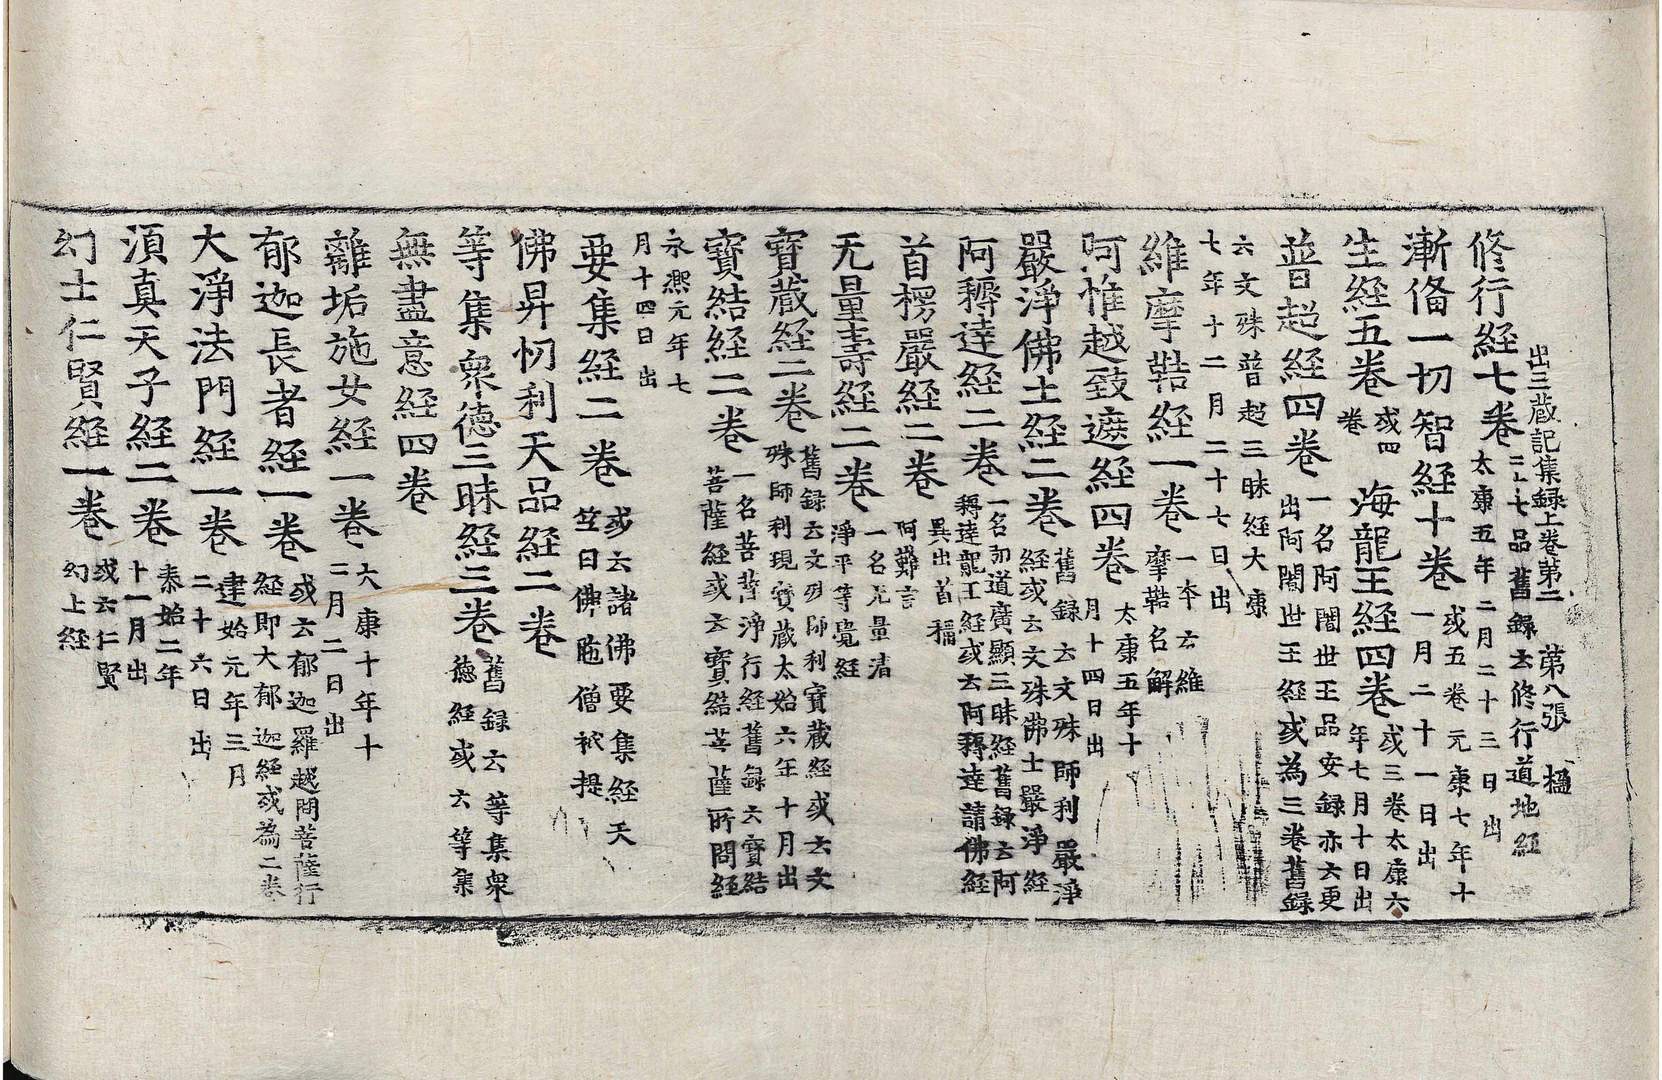 出三藏記集録上卷第二　第八張　楹
修行經七卷 二十七品舊録云修行道地經太康五年二月二十三日出
漸備一切智經十卷 或五卷元康七年十一月二十一日出
生經五卷 或四卷　海龍王經四卷 或三卷太康六年七月十日出
普超經四卷 一名阿闍世王品安録亦云更出阿闍世王經或為三卷舊録
六文殊普超三昧經大康七年十二月二十七日出
維摩鞊經一卷 一本云維摩鞊名解
阿惟越致遮經四卷 太康五年十月十四日出
嚴淨佛土經二卷 舊録云文殊師利嚴淨經或云文殊佛土嚴淨經
阿耨達經二卷 一名弘道廣顯三昧經舊録云阿耨達龍王經或云阿耨達請佛經
首楞嚴經二卷 異出首稱阿難言
无量壽經二卷 一名无量清淨平等覺經
寶藏經二卷 舊録云文殊師利寶藏經或云文殊師利現寶藏太始六年十月出
寶結經二卷 一名菩薩淨行經舊録云寶結菩薩經或云寶結菩薩所問經
永熙元年七月十四日出
要集經二卷 或云諸佛要集經天竺曰佛陁僧祇提
佛昇忉利天品經二卷
等集衆德三昧經三卷 舊録云等集衆德經或云等集
無盡意經四卷
離垢施女經一卷 太康十年十二月二日出
郁迦長者經一卷 或云郁迦羅越問菩薩行經即大郁迦經或為二卷
大淨法門經一卷 建始元年三月二十六日出
湏真天子經二卷 泰始二年十一月出
幻士仁賢經一卷 或云仁賢幻士經